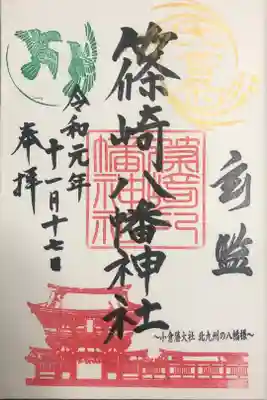 篠崎八幡神社
篠崎八
幡神社
令和元年
十一月十七日
奉拝
北九州の八幡様~